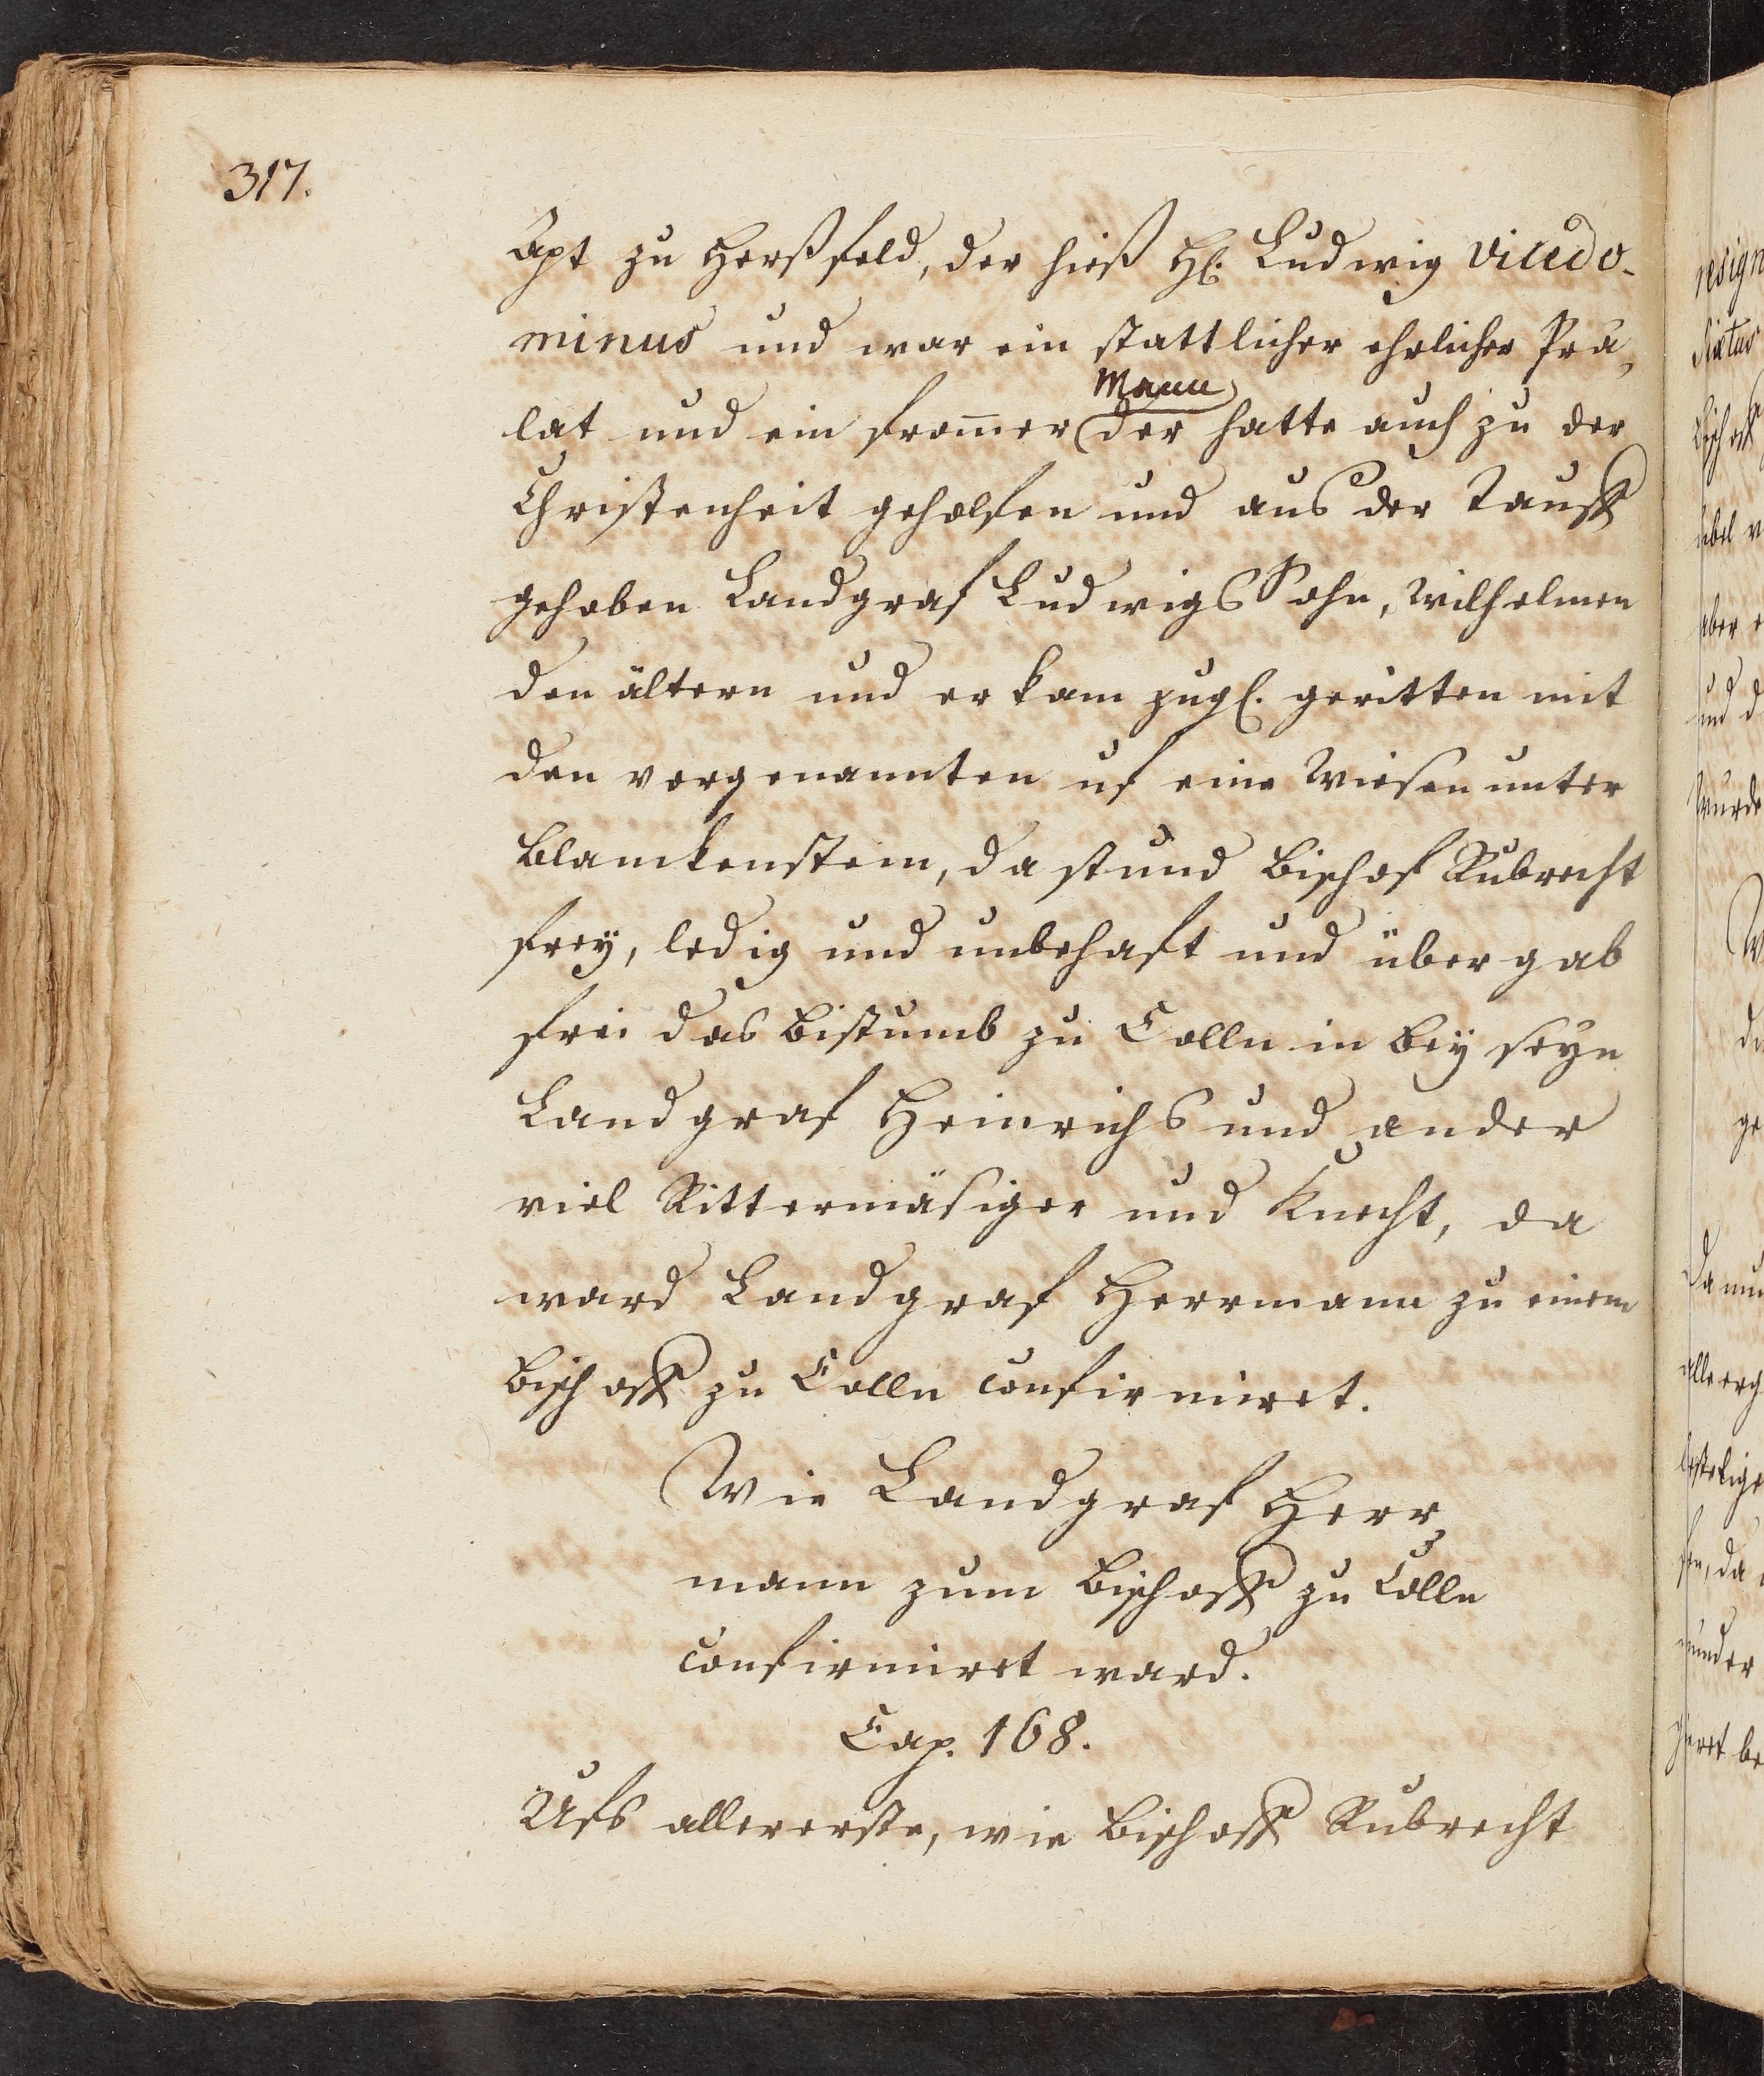 317.
Apt zu Herßfeld, der hieß H. Ludwig vicedo-
minus und war ein stattlicher ehrlicher Prä,
Mann
lat und ein from̅er der hatte auch zu der
Christenheit geholfen und aus der Tauff
gehoben Landgraf Ludwigs Sohn, Wilhelmen
den ältern und er kam zugl. geritten mit
den vorgenannten uf eine Wiesen unter
Blanckenstein, da stund Bischof Rubrecht
freÿ, ledig und unbehaft und übergab
frei das Bistumb zu Colln in beÿ seÿn
Landgraf Heinrichs und ander
viel Rittermäsiger und Knecht, da
ward Landgraf Herrmann zu einem
Bischoff zu Colln confirmiret.
Wie Landgraf Herr,
mann zum Bischoff zu Cölln
confirmiret ward.
Cap. 168.
Ufs allererste, wie Bischoff Rubrecht